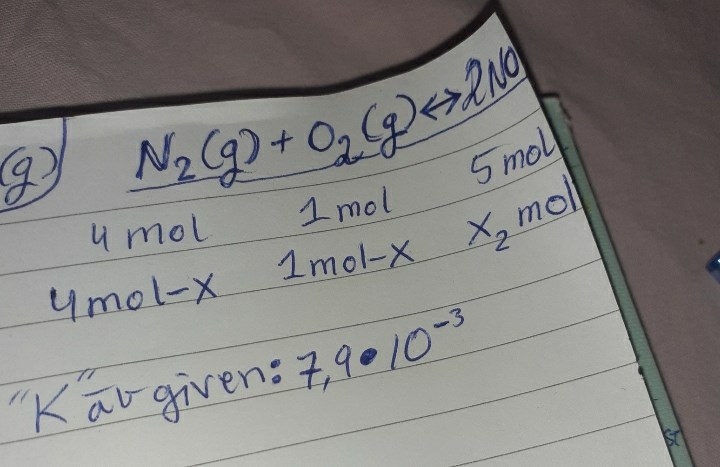 (g) N₂(g) + O₂(g) ↔ 2NO
4 mol 1 mol 5 mol
4mol-x 1mol-x x₂ mol
"K" är given: 7,9•10⁻³